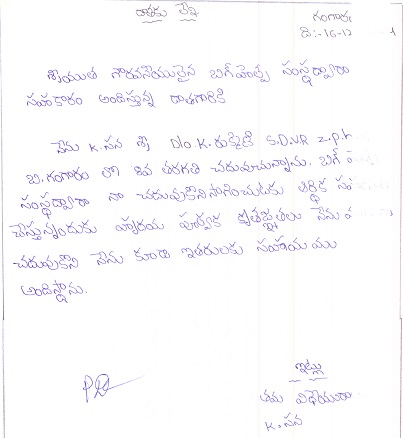 దాతకు లేఖ
గంగారం
ది:-16-12
శ్రీయుత గౌరవనీయులైన బిగ్ హెల్ప్ సంస్థద్వారా
సహకారం అందిస్తున్న దాతగారికి
నేను K. D/o K. S.D.VR z.p.h
బి. గంగారం లో తరగతి చదువుచున్నాను. బిగ్
సంస్థద్వారా నా చదువుకొనసాగించుటకు ఆర్థిక
చేస్తున్నందుకు హృదయ పూర్వక కృతజ్ఞతలు నేను
చదువుకొని నేను కూడా ఇతరులకు సహాయ ము
అందిస్తాను.
ఇట్లు
తమ విధేయురా
K.